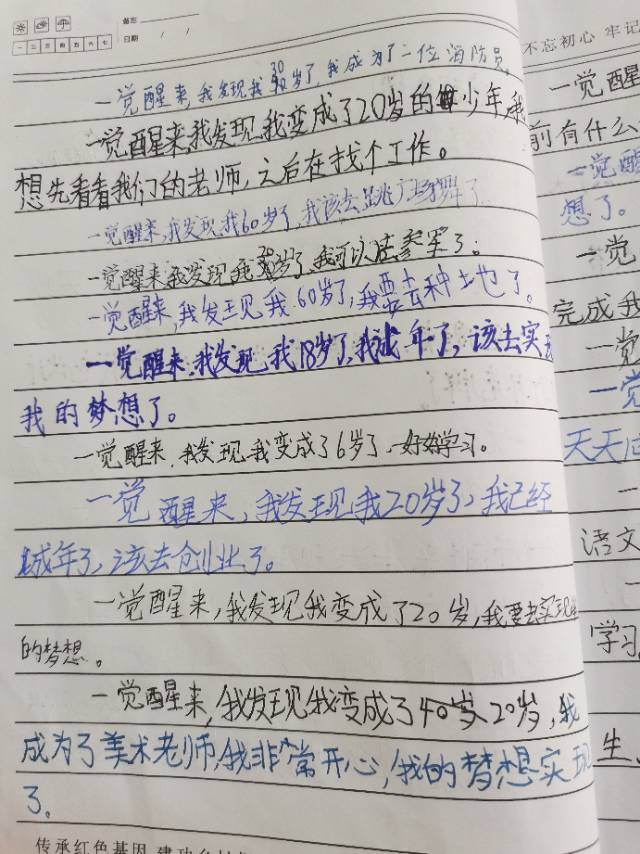 备忘
日期 / /
一 二 三 四 五 六 七
不忘初心 牢记
一觉醒来,我发现我30岁了,我成为了一位消防员。
一觉醒来,我发现我变成了20岁的少年,我
想先看看我们的老师,之后在找个工作。
一觉醒来,我发现我60岁了,我该去跳广场舞了
一觉醒来我发现我岁了,我可以去参军了。
一觉醒来,我发现我60岁了,我要去种土地了。
一觉醒来,我发现我18岁了,我成年了,该去实现
我的梦想了。
一觉醒来,我发现我变成了6岁了,好好学习。
一觉醒来,我发现我20岁了,我已经
成年了,该去创业了。
一觉醒来,我发现我变成了20岁,我要去实现我
的梦想。
一觉醒来,我发现我变成了40岁20岁,我
成为了美术老师,我非常开心,我的梦想实现
了。
传承红色基因
一觉醒
前有什么
一觉醒
想了。
一觉
完成我
一觉
一觉
天天
语文
学习
生、